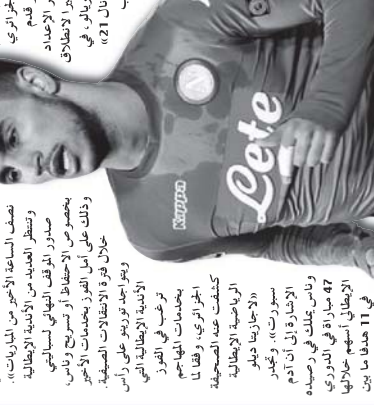 نصف الساعة الأخير من المباريات»،
وتنتظر العديد من الأندية الإيطالية
صدور الموقف النهائي لسباليتي
بخصوص الاحتفاظ أو تسريح وناس،
وذلك على أمل الفوز بخدمات الأخير
خلال فترة الانتقالات الصيفية.
ويتواجد تورينو على رأس
الأندية الإيطالية التي
ترغب في الفوز
بخدمات المهاجم
الجزائري، وفقا لما
كشفت عنه الصحيفة
الرياضية الإيطالية
«لاجازيتا ديلو
سبورت»، وتجدر
الإشارة إلى أن آدم
وناس يملك في رصيده
47 مباراة في الدوري
الإيطالي أسهم خلالها
في 11 هدفا ما بين
Kappa
N
Lete
قدم
الإعداد
لانطلاق
21»